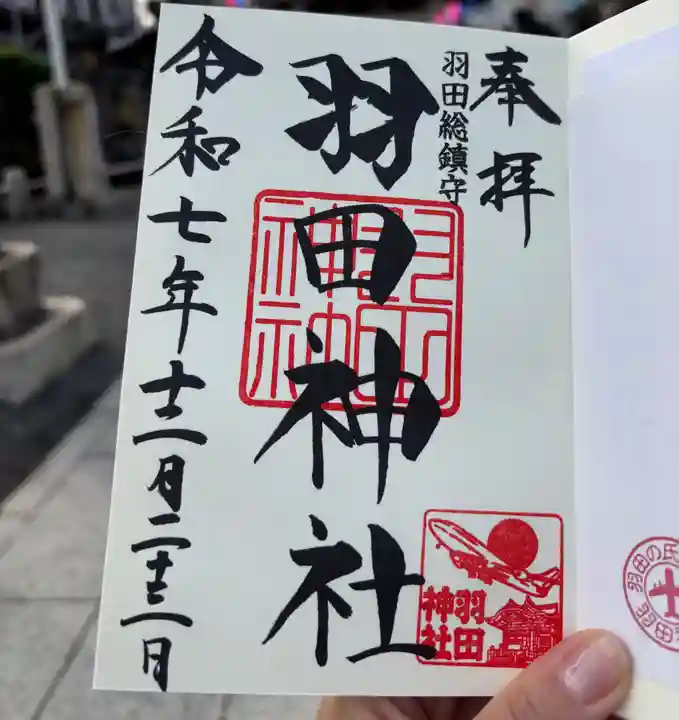 奉拝
羽田総鎮守
羽田神社
令和七年十二月二十二日
羽田
神社
羽田の氏
羽田